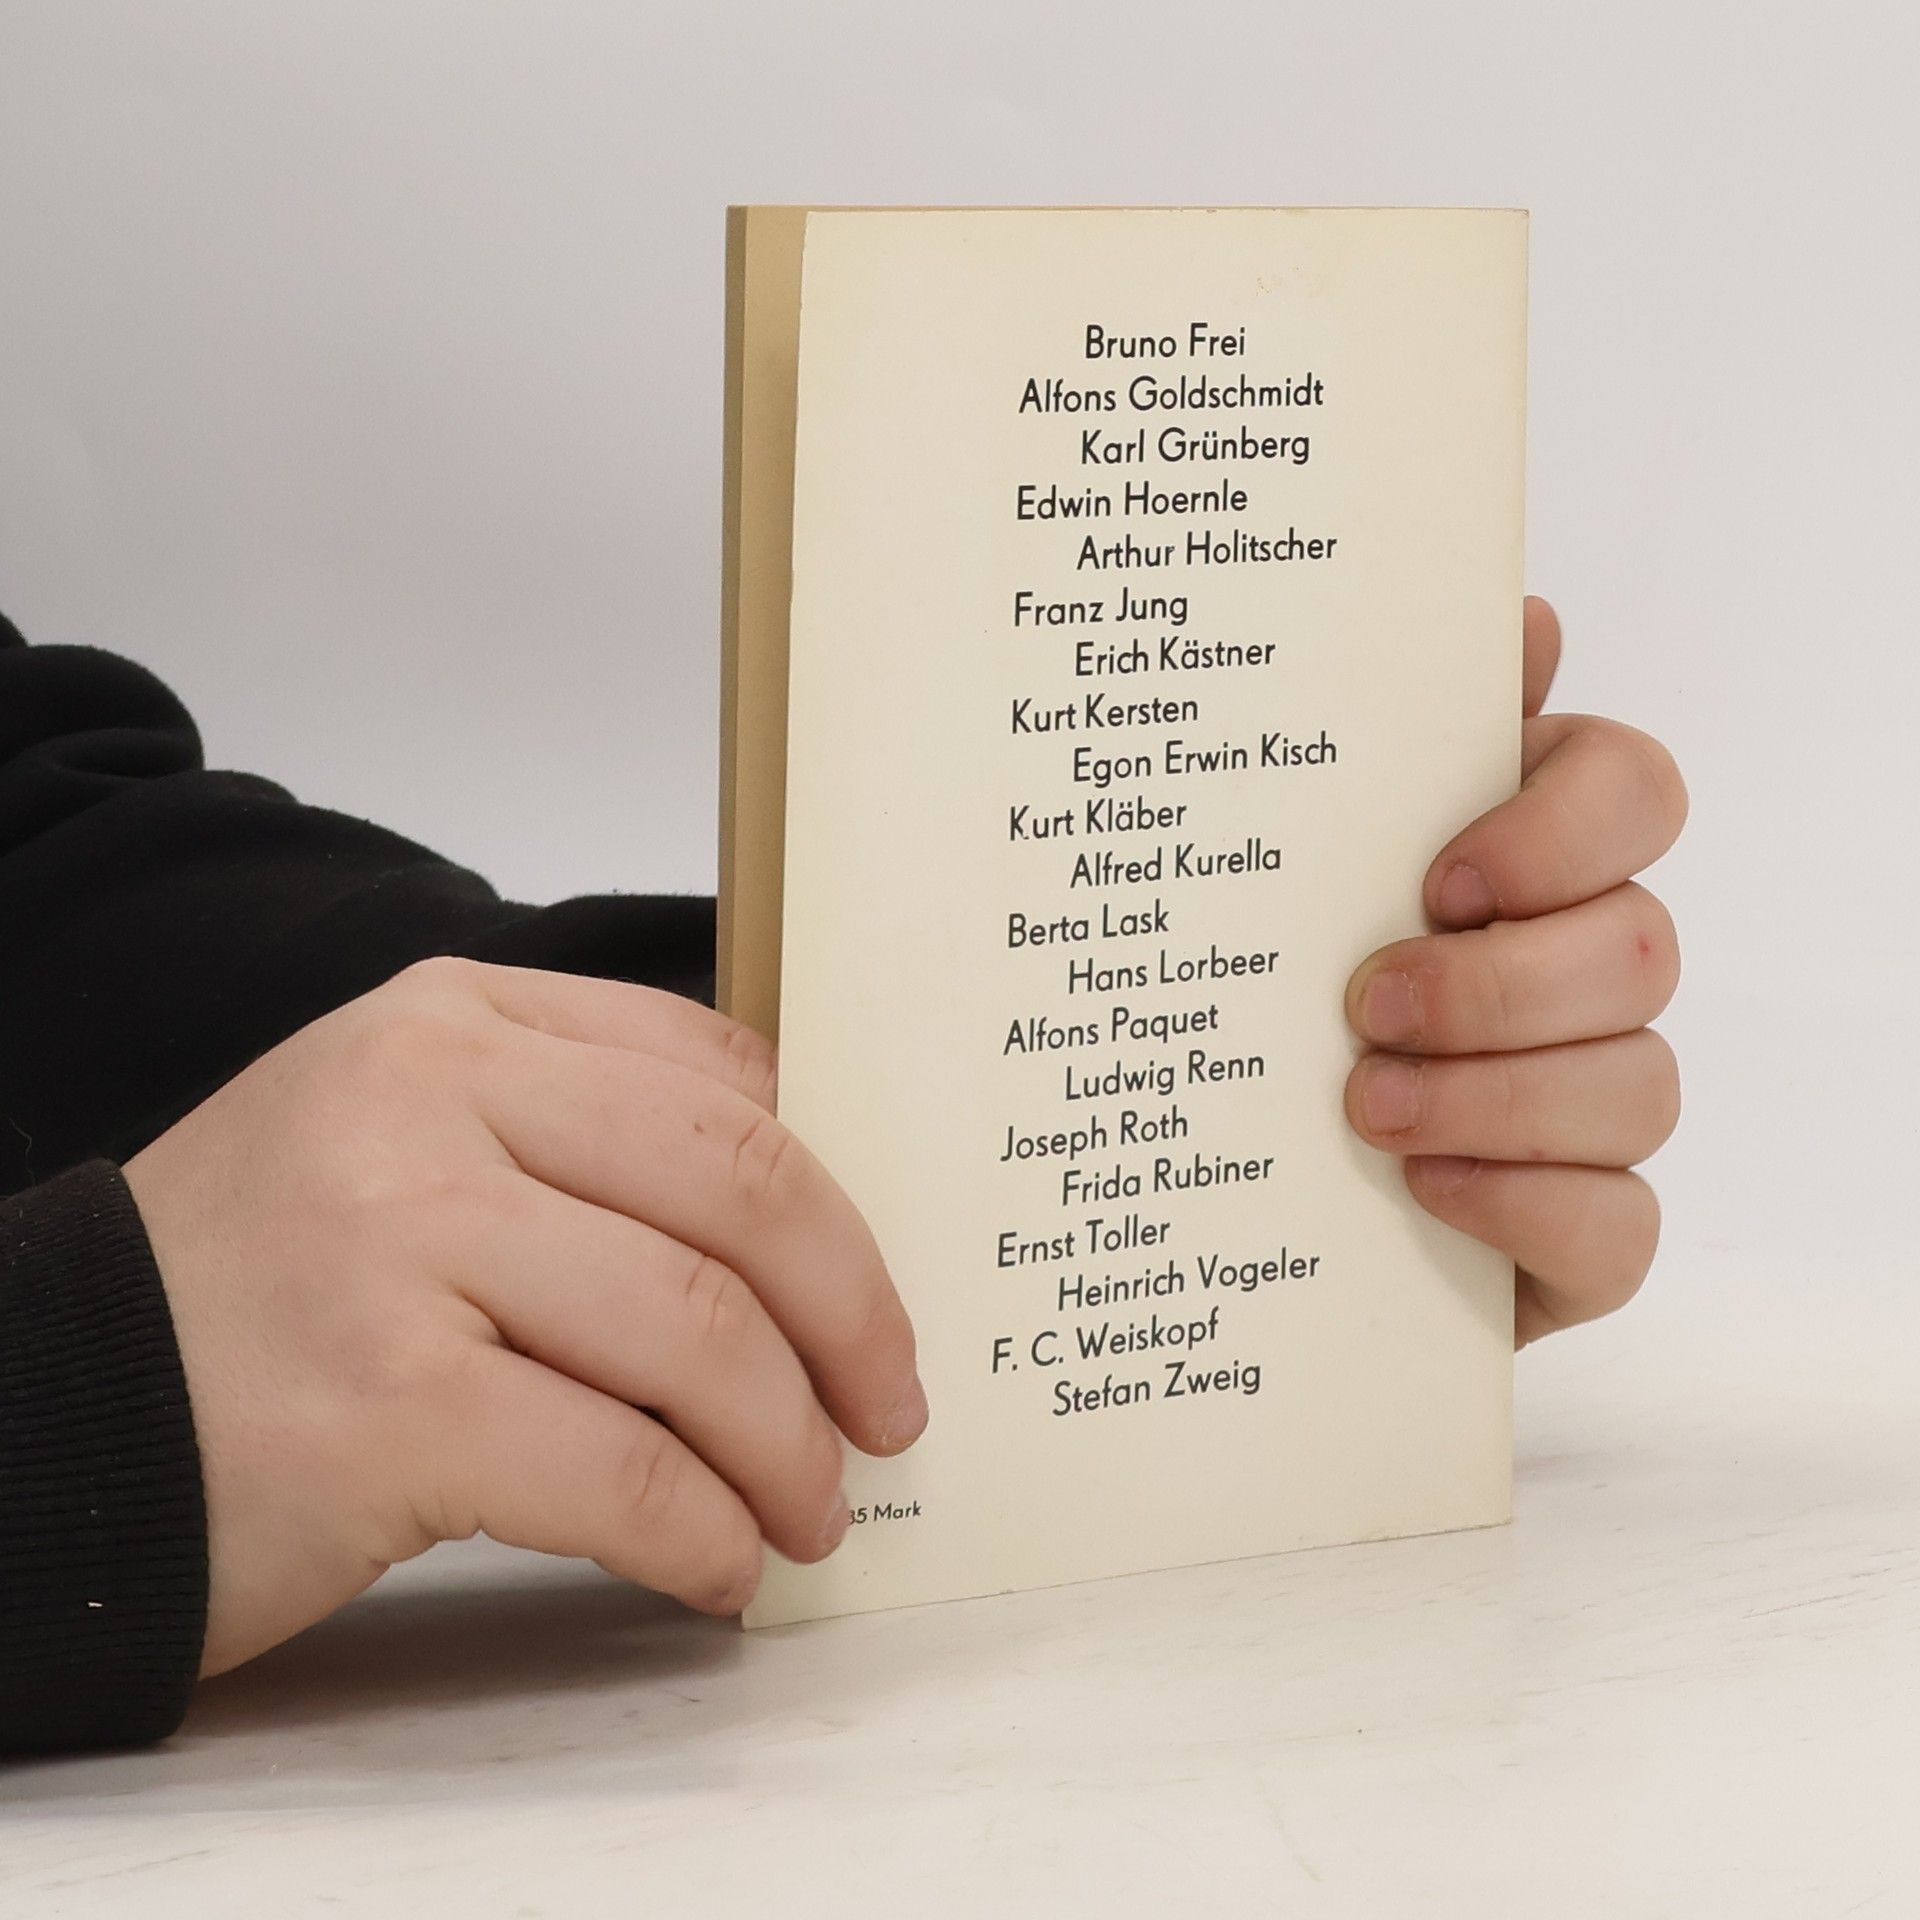 Bruno Frei
Alfons Goldschmidt
Karl Grünberg
Edwin Hoernle
Arthur Holitscher
Franz Jung
Erich Kästner
Kurt Kersten
Egon Erwin Kisch
Kurt Kläber
Alfred Kurella
Berta Lask
Hans Lorbeer
Alfons Paquet
Ludwig Renn
Joseph Roth
Frida Rubiner
Ernst Toller
Heinrich Vogeler
F. C. Weiskopf
Stefan Zweig
35 Mark